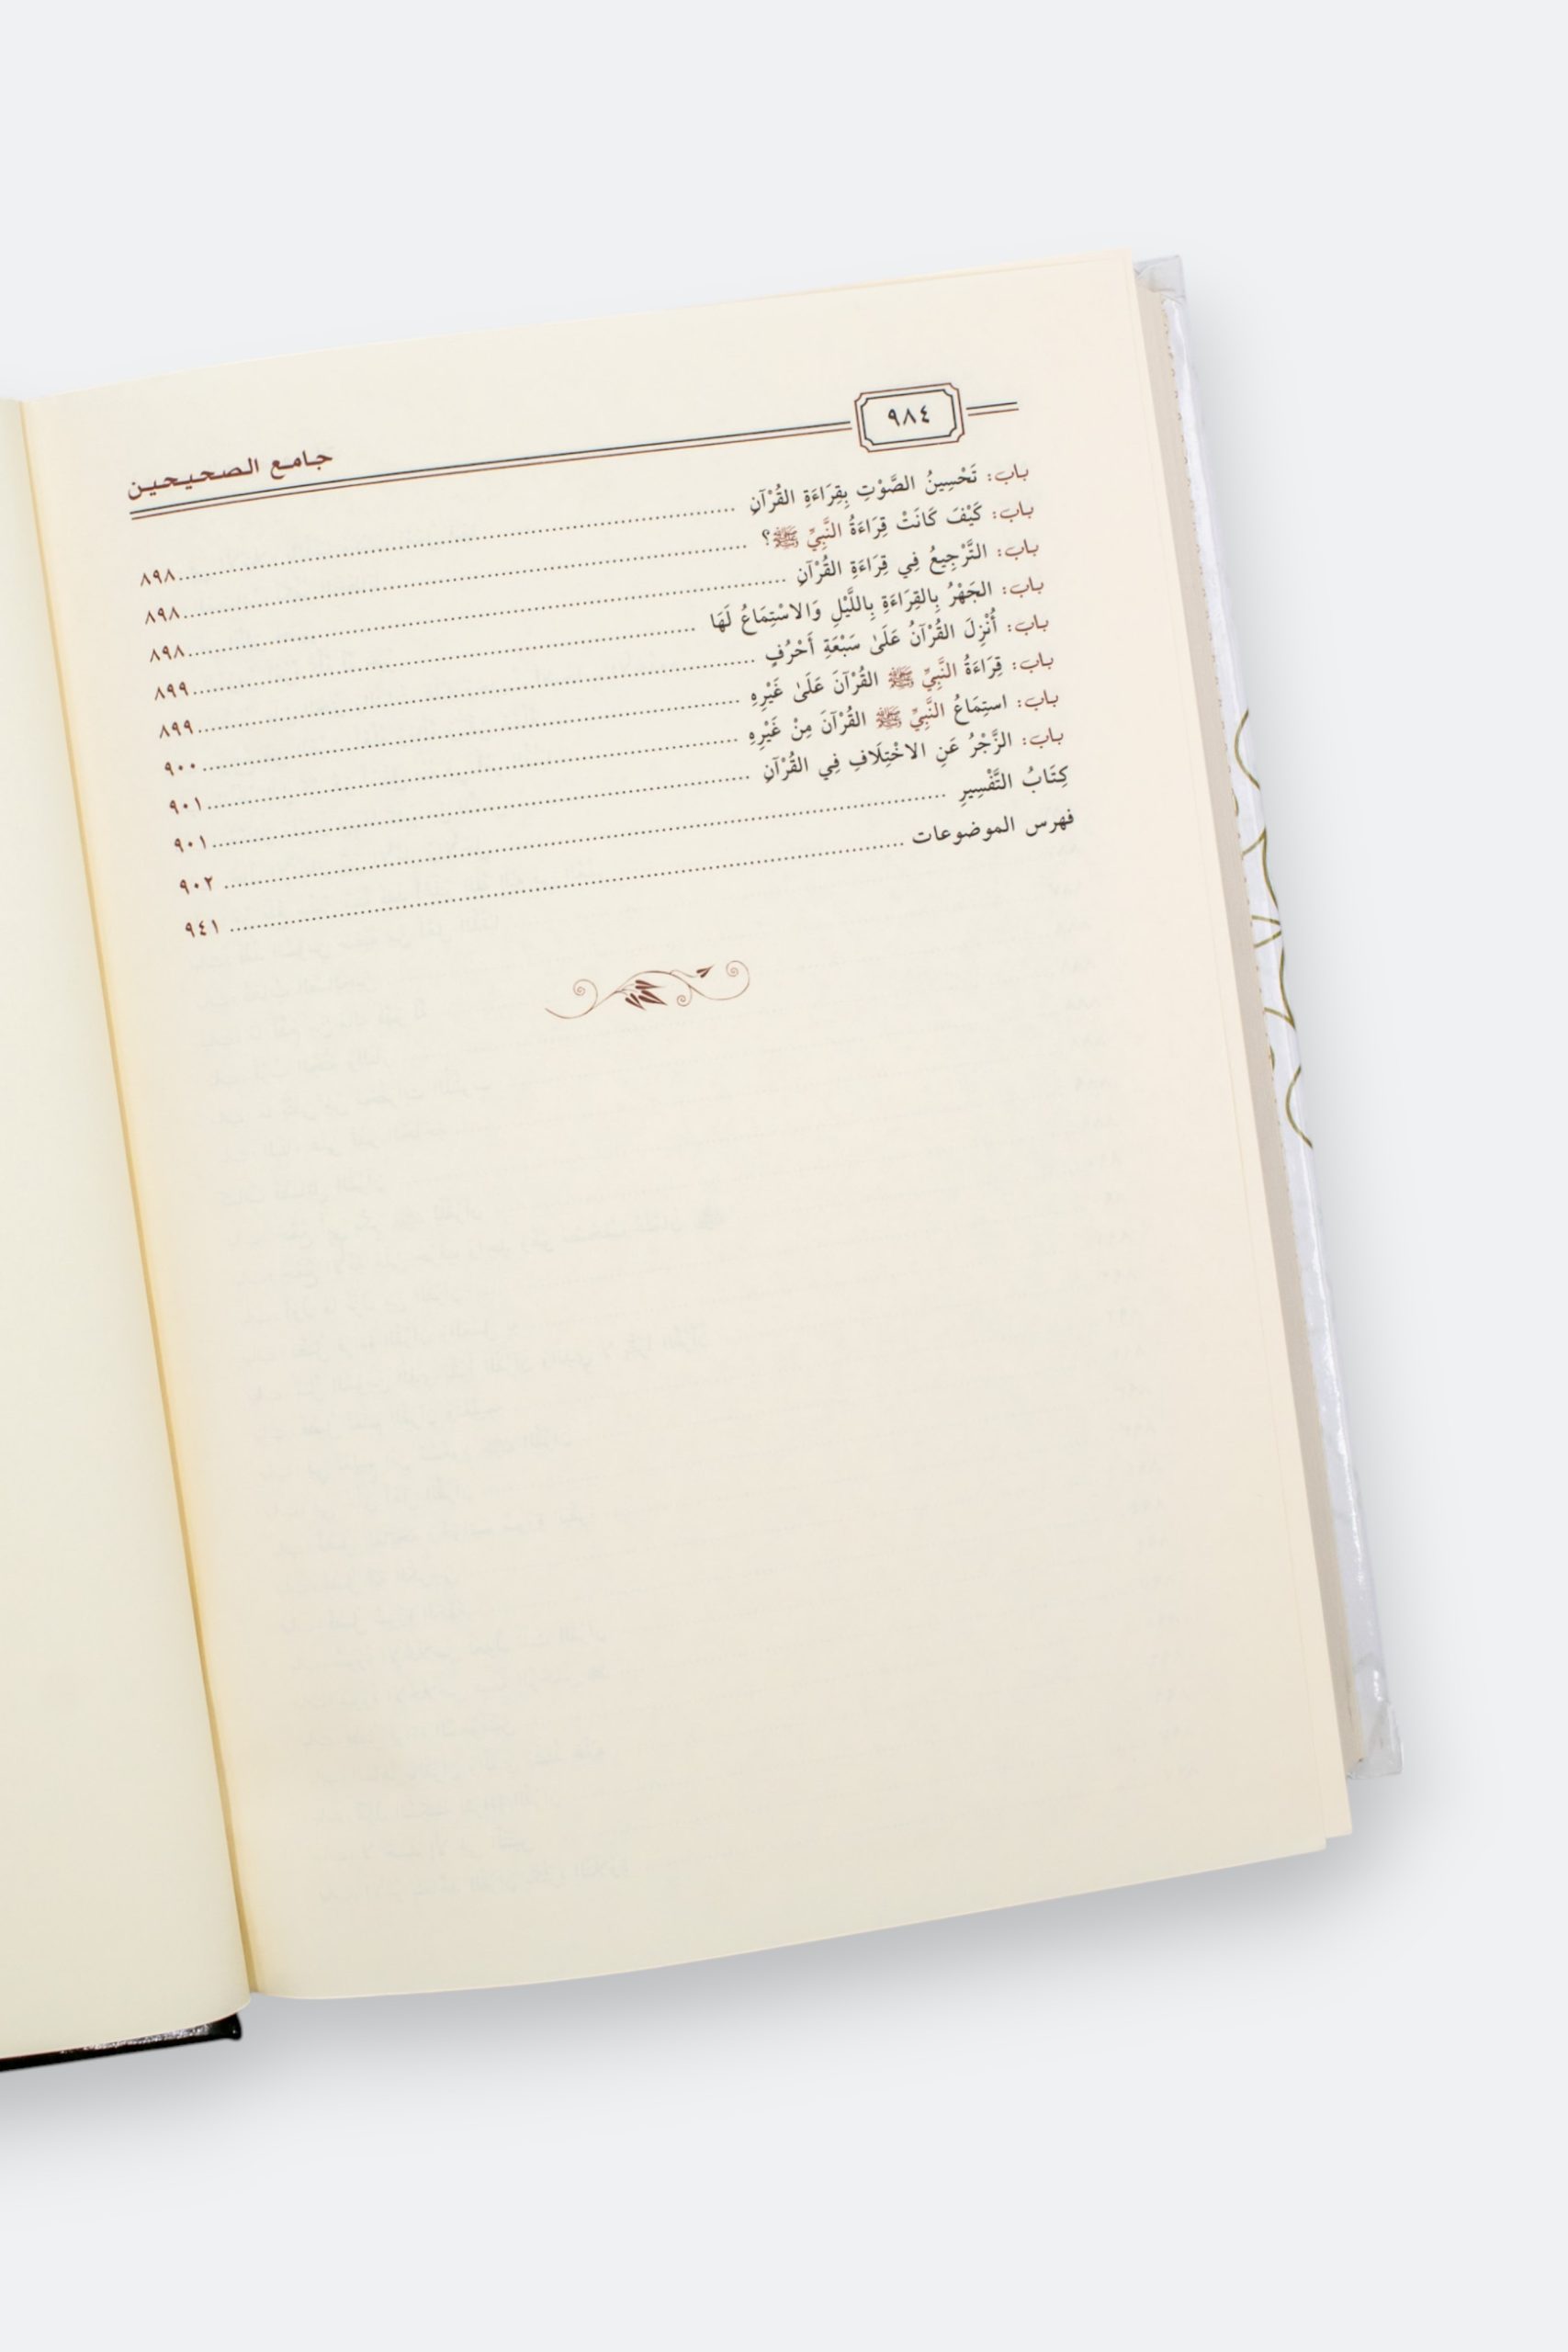 ٩٨٤
جامع الصحيحين
باب: تَحْسِينُ الصَّوْتِ بِقِرَاءَةِ القُرْآنِ ........ ٨٩٨
باب: كَيْفَ كَانَتْ قِرَاءَةُ النَّبِيِّ ﷺ؟ ........ ٨٩٨
باب: التَّرْجِيعُ فِي قِرَاءَةِ القُرْآنِ ........ ٨٩٨
باب: الجَهْرُ بِالقِرَاءَةِ بِاللَّيْلِ وَالاسْتِمَاعُ لَهَا ........ ٨٩٩
باب: أُنْزِلَ القُرْآنُ عَلَىٰ سَبْعَةِ أَحْرُفٍ ........ ٨٩٩
باب: قِرَاءَةُ النَّبِيِّ ﷺ القُرْآنَ عَلَىٰ غَيْرِهِ ........ ٩٠٠
باب: استِمَاعُ النَّبِيِّ ﷺ القُرْآنَ مِنْ غَيْرِهِ ........ ٩٠١
باب: الزَّجْرُ عَنِ الاخْتِلَافِ فِي القُرْآنِ ........ ٩٠١
كِتَابُ التَّفْسِيرِ ........ ٩٠٢
فهرس الموضوعات ........ ٩٤١